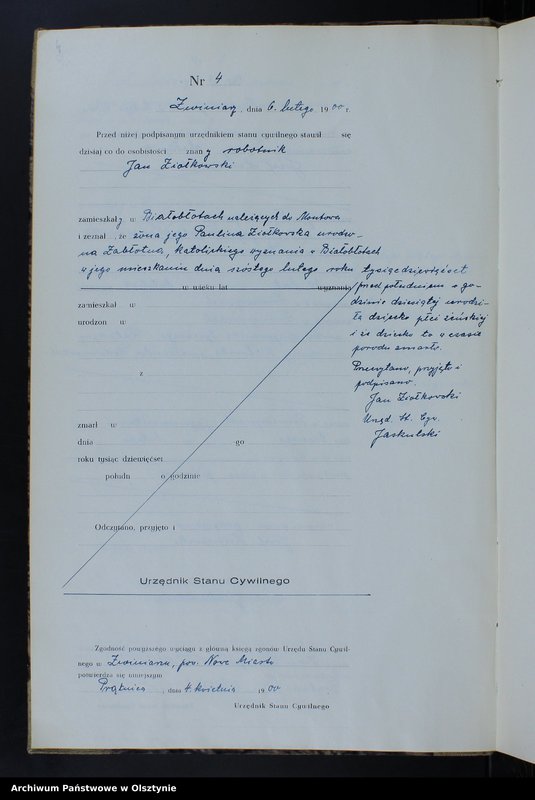 Nr 4
Zwiniarz, dnia 6. lutego 1900 r.
Przed niżej podpisanym urzędnikiem stanu cywilnego stawił się
dzisiaj co do osobistości znany robotnik
Jan Ziołkowski
zamieszkały w Białobłotach należących do Montowa
i zeznał, że żona jego Paulina Ziołkowska urodzo-
na Zabłotna, katolickiego wyznania w Białobłotach
w jego mieszkaniu dnia szóstego lutego roku tysiącdziewięćset
w wieku lat wyznania
przed południem o go-
dzinie dziesiątej urodzi-
ła dziecko płci żeńskiej
i że dziecko to w czasie
porodu zmarło.
Przeczytano, przyjęto i
podpisano.
Jan Ziołkowski
Urzęd. St. Cyw.
Jaskulski
zamieszkał w
urodzon w
z
zmarł w
dnia go
roku tysiąc dziewięćset
połudn o godzinie
Odczytano, przyjęto i
Urzędnik Stanu Cywilnego
Zgodność powyższego wyciągu z główną księgą zgonów Urzędu Stanu Cywil-
nego w Zwiniarzu, pow. Nowe Miasto
potwierdza się niniejszym
Prątnica, dnia 4. kwietnia 1900
Urzędnik Stanu Cywilnego
Archiwum Państwowe w Olsztynie